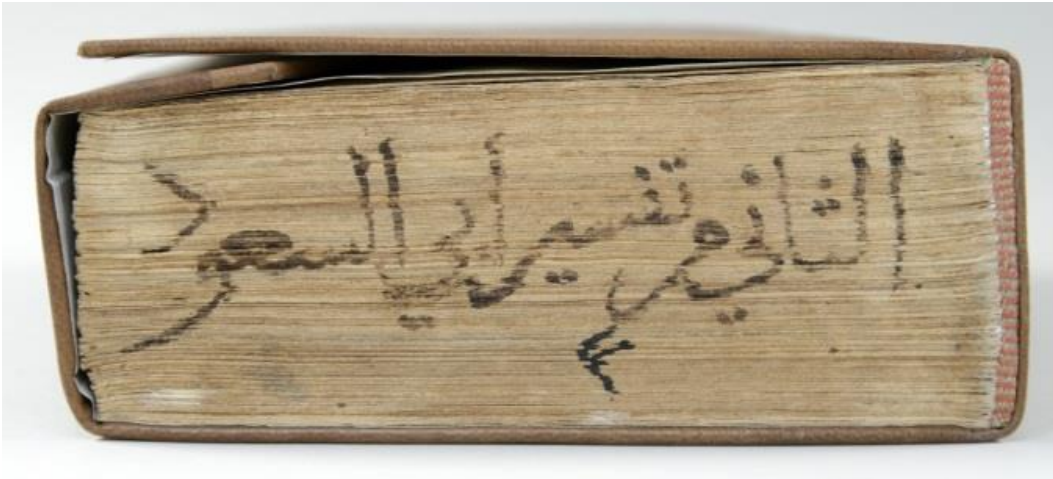 الثاني من تفسير أبي السعود